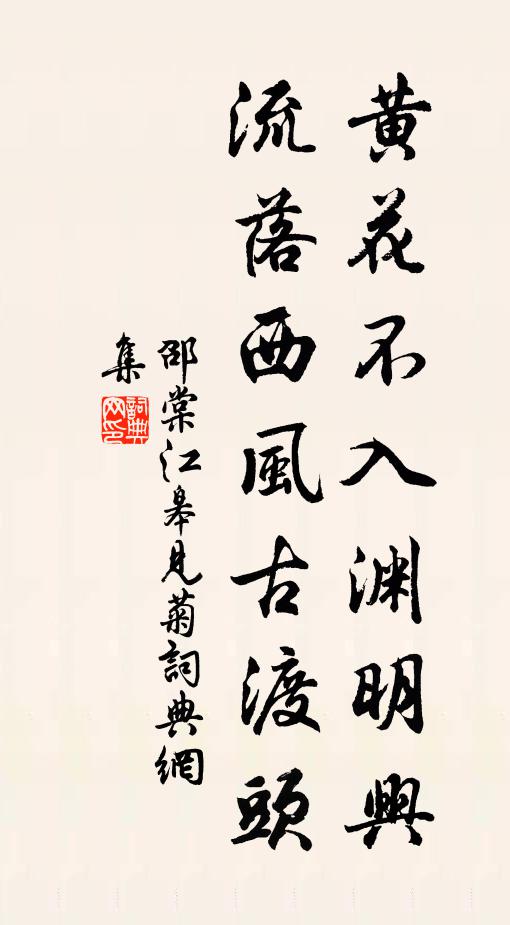 黄花不入渊明興
流落西風古渡頭
邵棠江皋見菊詞典網
集
詞典
网印